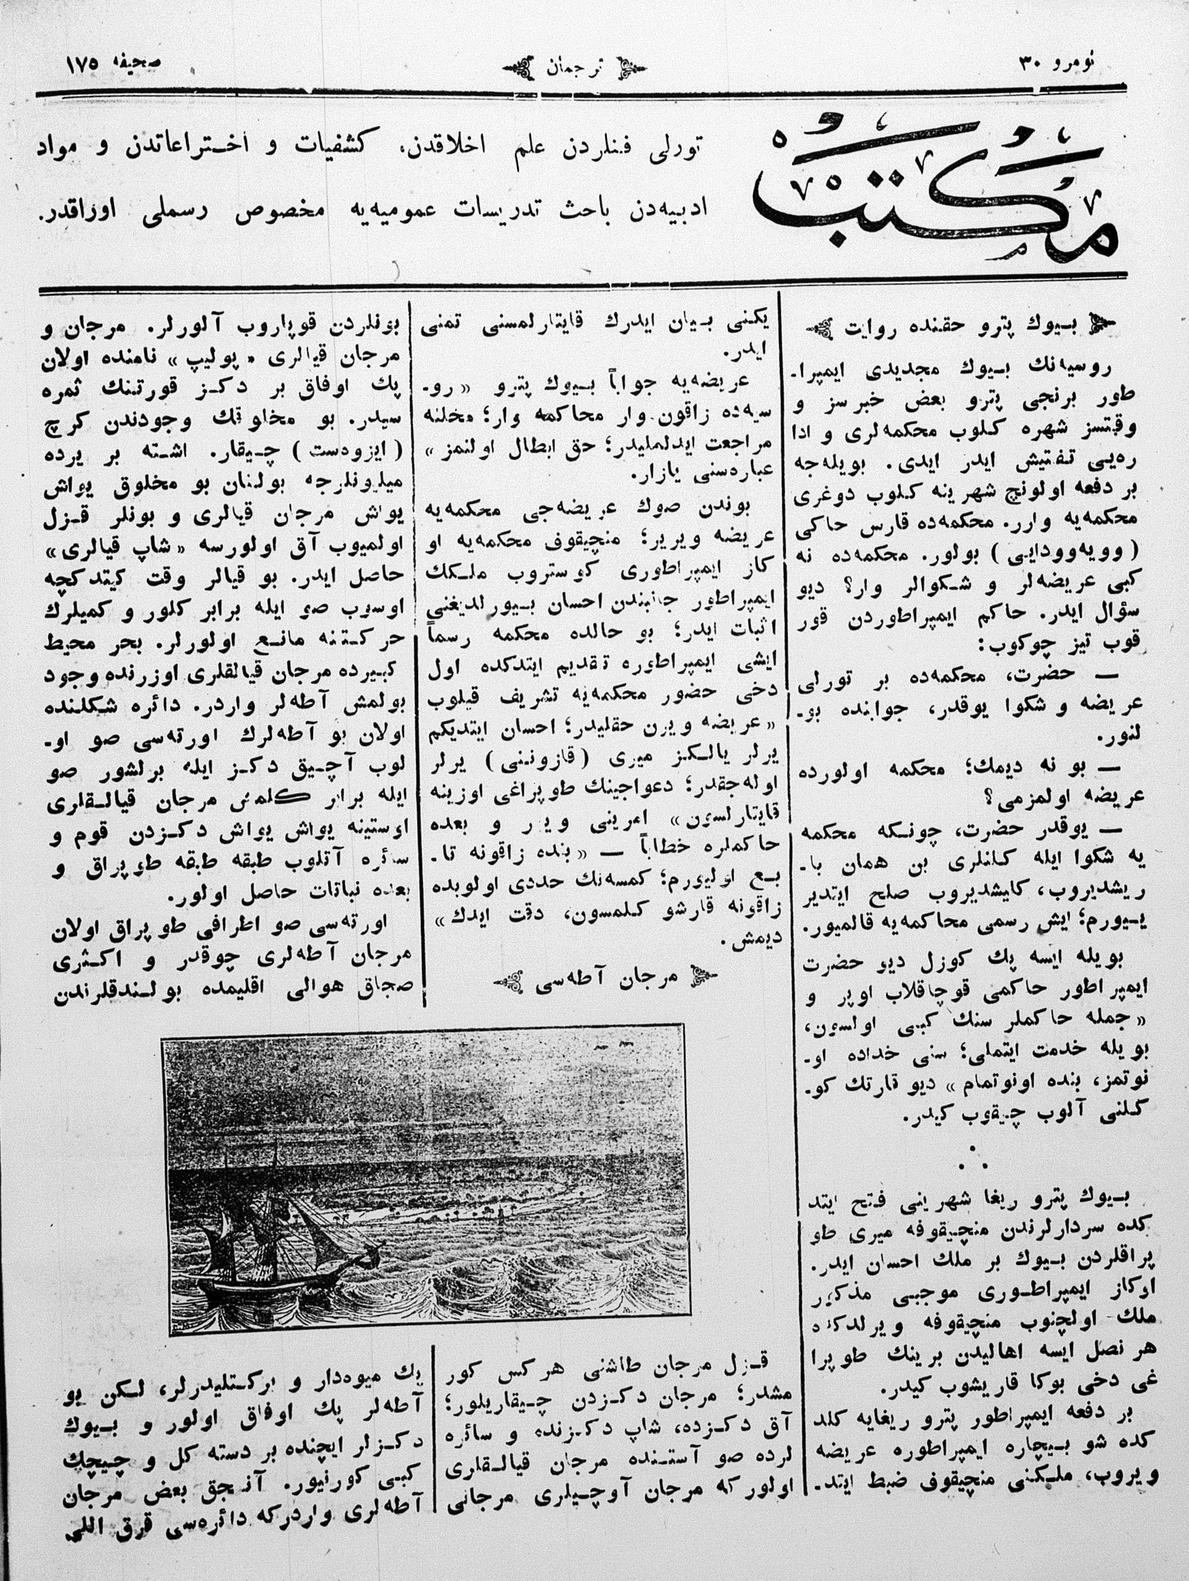 نومرو ٣٠
ترجمان
صحیفه ١٧٥
مكتب
تورلی فنلردن علم اخلاقدن، كشفیات و اختراعاتدن و مواد
ادبیه‌دن باحث تدریسات عمومیه‌یه مخصوص رسملی اوراقدر.
بیوك پترو حقنده روایت
روسیه‌نك بیوك مجددی ایمپرا-
طور برنجی پترو بعض خبرسز و
وقتسز شهره كلوب محكمه‌لری و ادا
ره‌یی تفتیش ایدر ایدی. بویله‌جه
بر دفعه اولونچ شهرینه كلوب دوغری
محكمه‌یه وارر. محكمه‌ده قارس حاكی
(وویه‌وودایی) بولور. محكمه‌ده نه
كبی عریضه‌لر و شكوالر وار؟ دیو
سؤال ایدر. حاكم ایمپراطوردن قور
قوب تیز چوكوب:
— حضرت، محكمه‌ده بر تورلی
عریضه و شكوا یوقدر، جوابنده بو-
لنور.
— بو نه دیمك؛ محكمه اولورده
عریضه اولمزمی؟
— یوقدر حضرت، چونكه محكمه
یه شكوا ایله كلنلری بن همان با-
ریشدیروب، كلیشدیروب صلح ایتدیر
ییورم؛ ایش رسمی محاكمه‌یه قالمیور.
بویله ایسه پك كوزل دیو حضرت
ایمپراطور حاكمی قوچاقلاب اوپر و
«جمله حاكملر سنك كبی اولسون،
بویله خدمت ایتملی؛ سنی خداده او-
نوتمز، بنده اونوتمام» دیو قارتك كو-
كلنی آلوب چیقوب كیدر.
بیوك پترو ریغا شهرینی فتح ایتد
كده سردارلرندن منچیقوفه میری طو
پراقلردن بیوك بر ملك احسان ایدر.
اوكاز ایمپراطوری موجبی مذكور
ملك اولچنوب منچیقوفه ویرلدكده
هر نصل ایسه اهالیدن برینك طوپرا
غی دخی بوكا قاریشوب كیدر.
بر دفعه ایمپراطور پترو ریغایه كلد
كده شو بیچاره ایمپراطوره عریضه
ویروب، ملكنی منچیقوف ضبط ایتد-
یكنی بیان ایدرك قایتارلمسنی تمنی
ایدر.
عریضه‌یه جواباً بیوك پترو «رو-
سیه‌ده زاقون وار محاكمه وار؛ محلنه
مراجعت ایدلملیدر؛ حق ابطال اولنمز»
عباره‌سنی یازار.
بوندن صوك عریضه‌جی محكمه‌یه
عریضه ویریر؛ منچیقوف محكمه‌یه او
كاز ایمپراطوری كوستروب ملكك
ایمپراطور جانبندن احسان بیورلدیغنی
اثبات ایدر؛ بو حالده محكمه رسماً
ایشی ایمپراطوره تقدیم ایتدكده اول
دخی حضور محكمه‌یه تشریف قیلوب
«عریضه ویرن حقلیدر؛ احسان ایتدیكم
یرلر یالكز میری (قازوننی) یرلر
اوله‌جقدر؛ دعواجینك طوپراغی اوزینه
قایتارلسون» امرینی ویرر و بعده
حاكملره خطاباً — «بنده زاقونه تا-
بع اولیورم؛ كمسه‌نك حددی اولوبده
زاقونه قارشو كلمسون، دقت ایدك»
دیمش.
مرجان آطه‌سی
قزل مرجان طاشنی هركس كور
مشدر؛ مرجان دكزدن چیقاریلور؛
آق دكزده، شاپ دكزنده و سائره
لرده صو آستنده مرجان قیالقلری
اولور كه مرجان آوچیلری مرجانی
بونلردن قوپاروب آلورلر. مرجان و
مرجان قیالری «پولیپ» نامنده اولان
پك اوفاق بر دكز قورتنك ثمره
سیدر. بو مخلوقك وجودندن كرچ
(ایزوه‌ست) چیقار. اشته بر یرده
میلیونلرجه بولنان بو مخلوق یواش
یواش مرجان قیالری و بونلر قزل
اولمیوب آق اولورسه «شاپ قیالری»
حاصل ایدر. بو قیالر وقت كیتدكچه
اوسوب صو ایله برابر كلور و كمیلرك
حركتنه مانع اولورلر. بحر محیط
كبیرده مرجان قیالقلری اوزرنده وجود
بولمش آطه‌لر واردر. دائره شكلنده
اولان بو آطه‌لرك اورته‌سی صو او-
لوب آچیق دكز ایله برلشور صو
ایله برابر كلمش مرجان قیالقلری
اوستینه یواش یواش دكزدن قوم و
سائره آتلوب طبقه طبقه طوپراق و
بعده نباتات حاصل اولور.
اورته‌سی صو اطرافی طوپراق اولان
مرجان آطه‌لری چوقدر و اكثری
صجاق هوالی اقلیمده بولندقلرندن
پك میوه‌دار و بركتلیدرلر، لكن بو
آطه‌لر پك اوفاق اولور و بیوك
دكزلر ایچنده بر دسته كل و چیچك
كبی كورنیور. آنجق بعض مرجان
آطه‌لری واردركه دائره‌سی قرق اللی